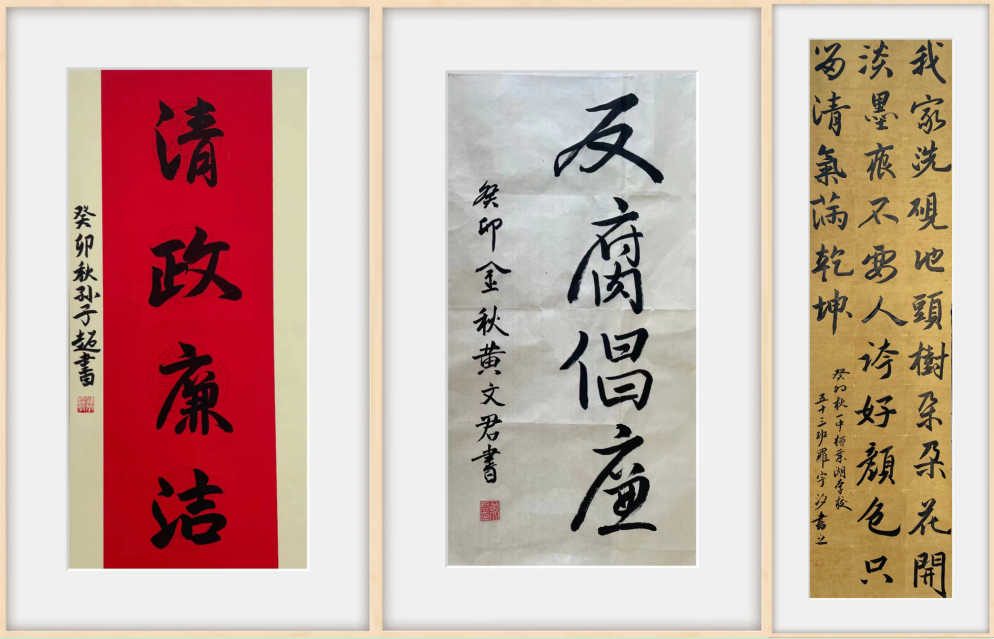 清政廉洁
癸卯秋孙子超書
反腐倡廉
癸卯金秋黄文君書
我家洗硯池頭樹朵朵花開
淡墨痕不要人誇好顏色只
留清氣滿乾坤
癸卯秋一中柳葉湖学校
五十三班羅宇汐書之